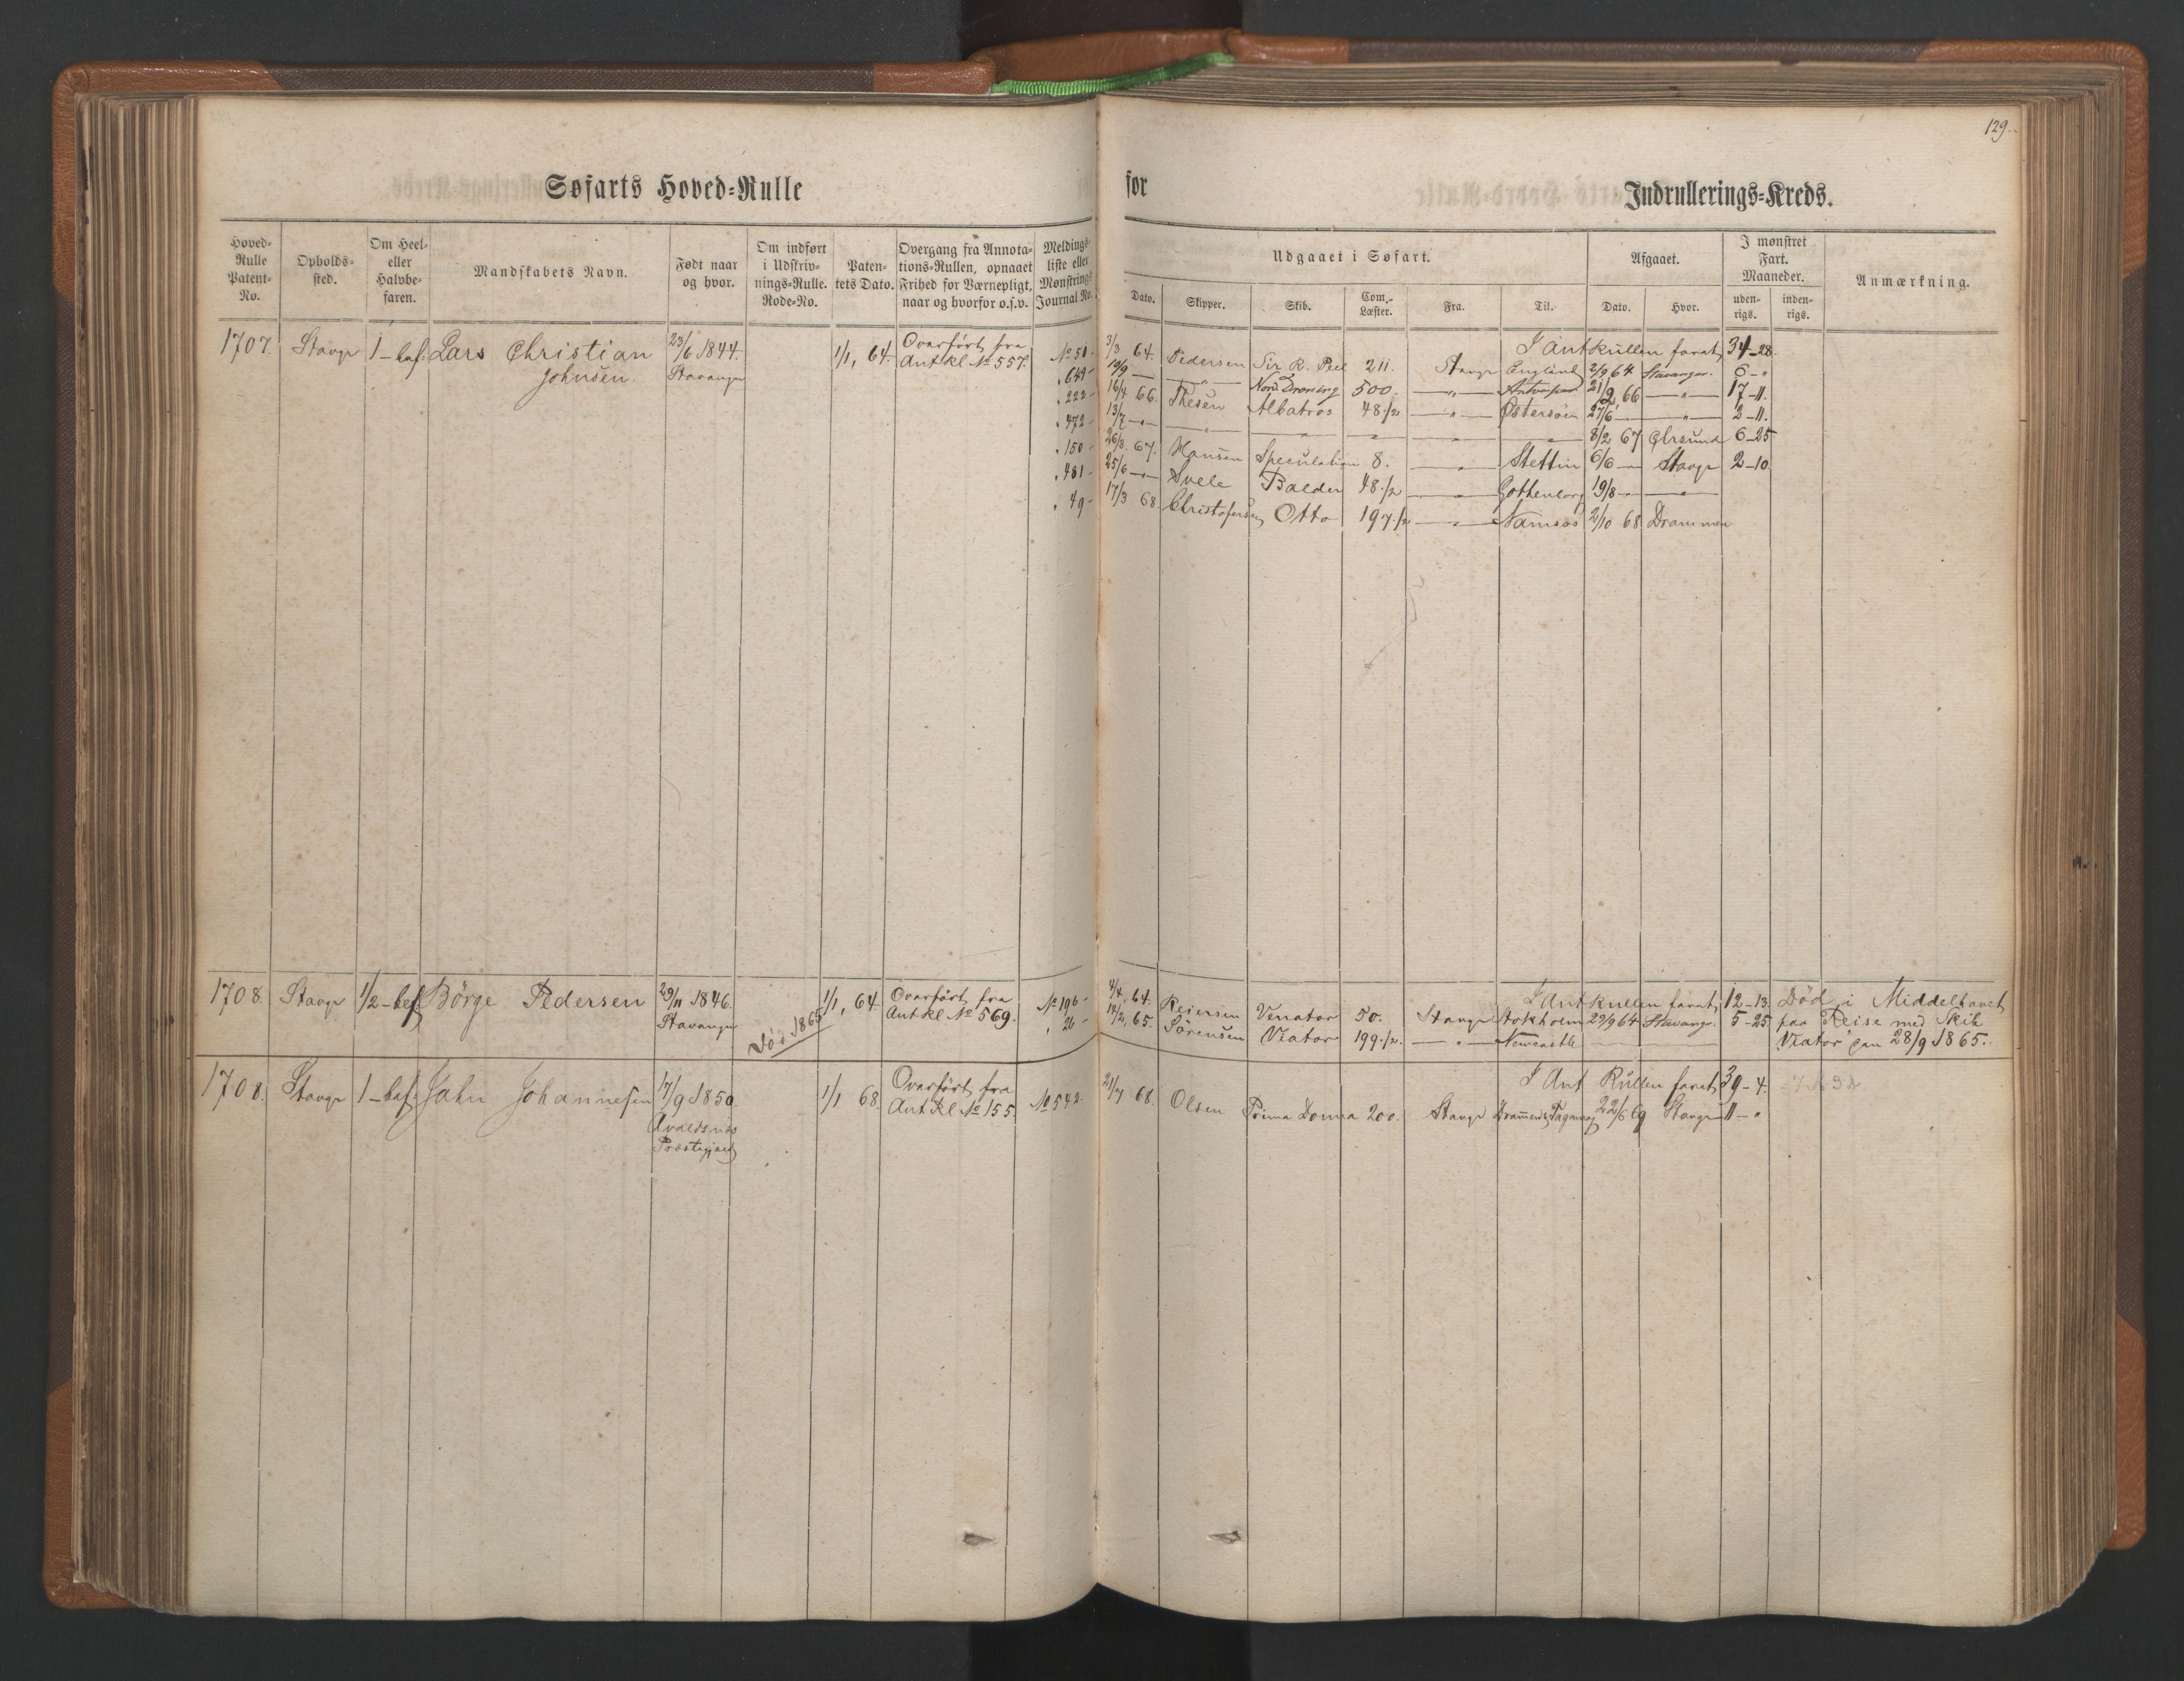 129.
Søfarts Hoved-Rulle for Indrullerings-Kreds.
Hoved-Rulle Patent-No.
Opholds-sted.
Om Heel- eller Halvbe-faren.
Mandskabets Navn.
Født naar og hvor.
Om indført i Udskriv-nings-Rulle. Rode-No.
Paten-tets Dato.
Overgang fra Annota-tions-Rullen, opnaaet Frihed for Værnepligt, naar og hvorfor o.s.v.
Meldings-liste eller Mønstrings Journal No.
Udgaaet i Søfart.
Dato. Skipper. Skib. Com.-Læster. Fra. Til.
Afgaaet.
Dato. Hvor.
I mønstret Fart. Maaneder.
uden-rigs. inden-rigs.
Anmærkning.
1707. Stavgr 1-bef. Lars Christian Johnsen. 23/6 1844. Stavanger 1/1, 64. Overført fra Ant Rl No 557.
I Ant Rullen faret 34-28.
No 50- 3/3 64. Pedersen Sir R. Peel 211. Stavgr England 2/9 64 Stavanger. 6-"
" 649- 10/9 — —"— Nord. Droning 500. —"— 21/2 66 —"— 17-11.
" 222- 16/4 66. Thesen Albatros 48./2 —"— Østersøen 27/6 —"— 2-11.
" 472- 13/7 —"— —"— —"— —"— —"— —"— 8/2 67 Egrsund 6-25
" 150- 26/3. 67. Hansen Speculation 8. —"— Stettin 6/6 —"— Stavgr 2-10.
" 481- 25/6 —"— Svele Balder 48./2 —"— Gothenborg 19/8 —"— —"—
" 49- 17/3 68. Christofersen Otto 197./2 —"— Namsos 2/10 68 Drammen
1708. Stavgr 1/2-bef Børge Pedersen 29/11 1846. Stavanger Død 1865 1/1, 64. Overført fra Ant Rl No 569.
I Ant Rullen faret 12-13.
No 196- 4/4, 64. Reiersen Venator 50. Stavgr Stokholm 29/9 64 Stavangr. 5-25.
" 26- 14/2, 65. Sørensen Viator 199./2. —"— Newcastle
Død i Middelhavet
paa Reise med Skib
Viator den 28/9 1865.
1708. Stavgr 1-bef. Jahn Johannesen 17/9 1850. Avaldsnes Præstegjæld 1/1 68. Overført fra Ant Rl No 155.
I Ant Rullen faret 39-4.
No 542- 21/7 68. Olsen Prima Donna 200. Stavgr 22/6 69 Stavgr 11-"